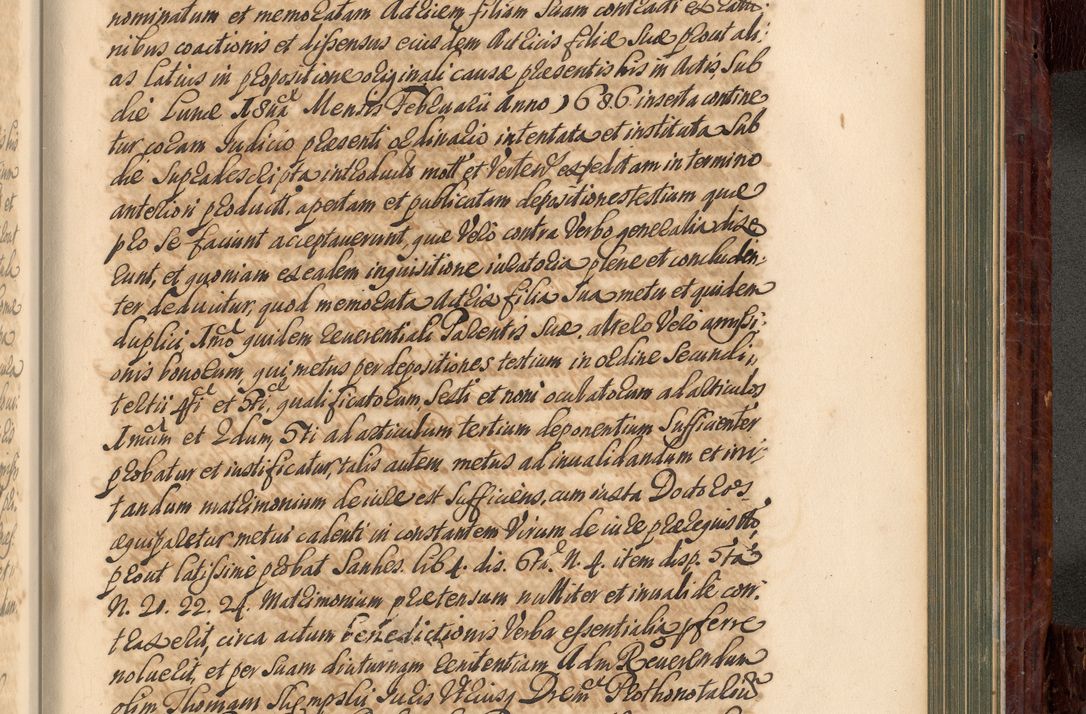 nominatum et memoratam Actricem filiam suam contracti
nibus coactionis et dissensus eiusdem Actricis filiæ suæ prout ali:
as latius in propositione originali causæ præsentis his in Actis sub
die Lunæ 18ua Mensis Februarii Anno 1686 inserta contine
tur coram Judicio præsenti ordinario intentata et instituta sub
die supradescripta introducto mott et Verten expeditam in termino
anteriori product. apertam et publicatam depositiones testium quæ
pro se faciunt acceptaverunt, quæ Vero contra Verbo generalia dixe
runt, et quoniam ex eadem inquisitione iuratoria plene et concluden
ter deducitur, quod memorata Actrix filia sua metu et quidem
duplici Imo quidem reverentiali Parentis suæ, altero Vero amissi:
onis bonorum, qui metus per depositiones testium in ordine secundi,
tertii 4ti et 5ti, qualificatorum, sexti et noni oculatorum ad articulos
Imum et 2dum, 5ti ad articulum tertium deponentium sufficienter
probatur et iustificatur, talis autem metus ad invalidandum et irri:
tandum matrimonium de iure est sufficiens, cum iuxta Doctores
æquiparetur metui cadenti in constantem Virum de iure præregsto,
prout latissime probat Sanhes. lib 4. dis. 6ta. N. 4. item disp. 5ta
N. 20. 22. 24. Matrimonium prætensum nulliter et invalide con:
traxerit, circa actum benedictionis Verba essentialia pferre
noluerit, et per suam diuturnam renitentiam Adm Reverendum
olim Thomam Juris Utriusq Drem Prothonotarium